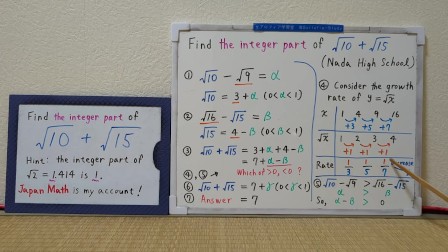 Find the integer part of
√10 + √15
Hint: the integer part of
√2 = 1.414 is 1.
Japan Math is my account!
Find the integer part of √10 + √15
(Nada High School)
① √10 − √9 = α
√10 = 3 + α (0<α<1)
② √16 − √15 = β
√15 = 4 − β (0<β<1)
③ √10 + √15 = 3 + α + 4 − β
= 7 + α − β
④, ⑤ Which of >0, <0 ?
⑥ √10 + √15 = 7 + γ (0<γ<1)
⑦ Answer = 7
④ Consider the growth
rate of y = √x
x 1 4 9 16
+3 +5 +7
√x 1 2 3 4
+1 +1 +1
Rate 1/3 1/5 1/7
⑤ √10 − √9 > √16 − √15
α > β
So, α − β > 0